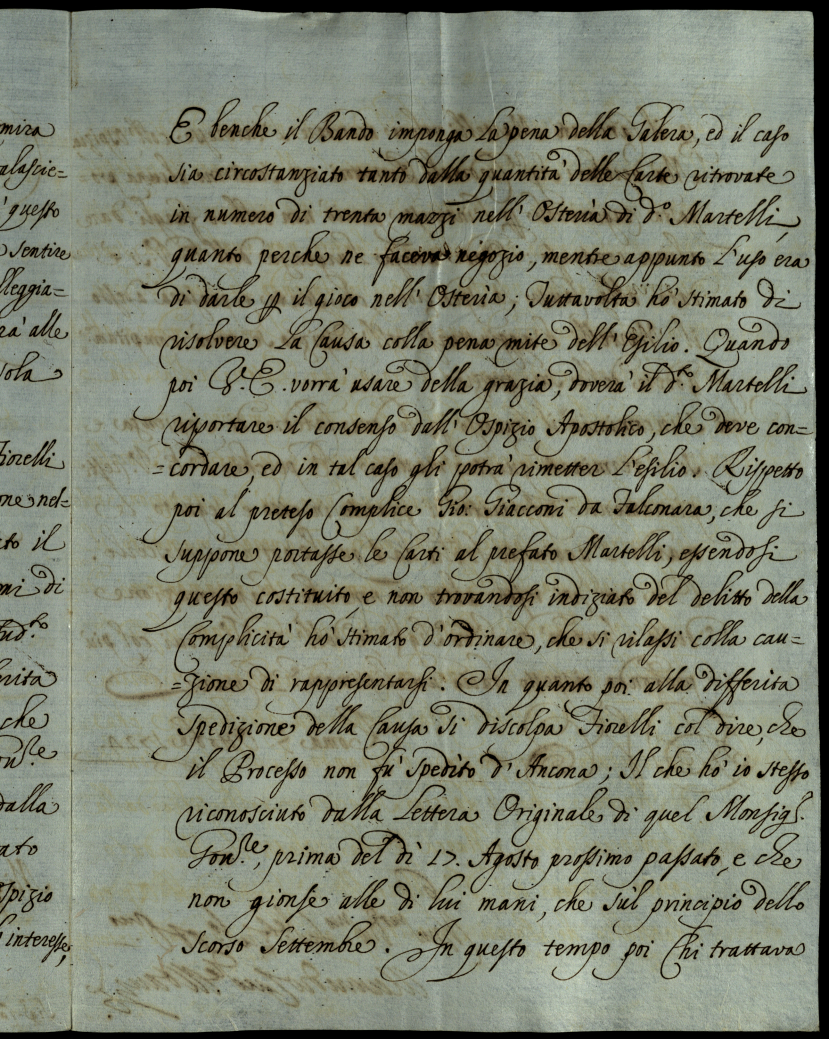 E benche il Bando imponga La pena della Galera, ed il caso
sia circostanziato tanto dalla quantità delle Carte ritrovate
in numero di trenta mazzi nell' Osteria di d.º Martelli,
quanto perche ne faceva negozio, mentre appunto L'uso era
di darle ꝑ il gioco nell' Osteria; Tuttavolta hò stimato di
risolvere La Causa colla pena mite dell' Esilio. Quando
poi V. E. vorrà usare della grazia, doverà il d.to Martelli
riportare il consenso dall' Ospizio Apostolico, che deve con-
=cordare, ed in tal caso gli potrà rimetter L'esilio. Rispetto
poi al preteso Complice Gio: Giacconi da Falconara, che si
suppone portasse le Carti al prefato Martelli, essendosi
questo costituito, e non trovandosi indiziato del delitto della
Complicità hò stimato d'ordinare, che si rilassi colla cau-
=zione di rappresentarsi. In quanto poi alla differita
Spedizione della Causa si discolpa Fiorelli col dire, che
il Processo non fù spedito d'Ancona; Il che hò io stesso
riconosciuto dalla Lettera Originale di quel Monsig.r
Gov.re, prima del dì 17. Agosto prossimo passato, e che
non gionse alle di lui mani, che sul principio dello
scorso Settembre. In questo tempo poi Chi trattava
mira
alascie=
questo
sentire
lleggia=
rà alle
vola
Fiorelli
one nel=
to il
mi di
rita
che
dalla
ato
spizio
interesse,